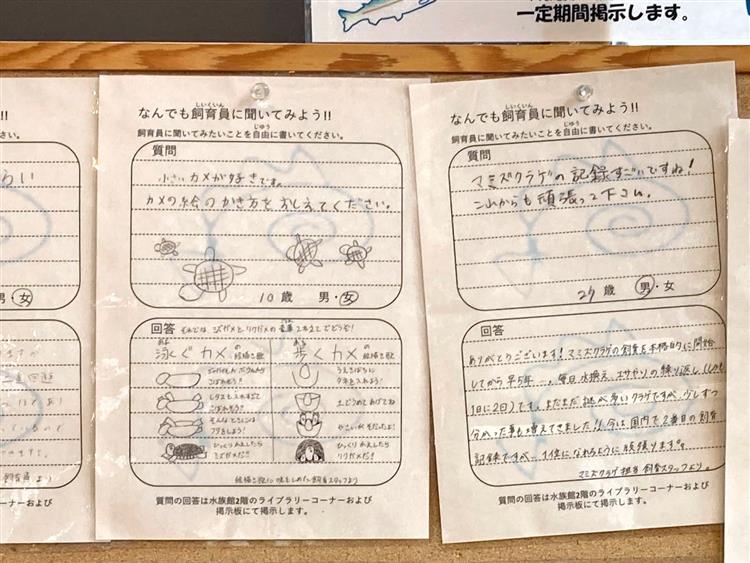 一定期間掲示します。
!!
さい。
らい
男・女
より
コーナーおよび
なんでも飼育員に聞いてみよう!!
しいくいん
飼育員に聞いてみたいことを自由に書いてください。
じゆう
質問
小さいカメが好きです。
カメの絵のかき方をおしえてください。
10歳 男・女
回答 それでは、ウミガメとリクガメの豪華2本立てでどうぞ!
およ
泳ぐカメの絵描き歌
ある
歩くカメの絵描き歌
ひっくりかえしたら
ウミガメだ!!
ひっくりかえしたら
リクガメだ!!
質問の回答は水族館2階のライブラリーコーナーおよび
掲示板にて掲示します。
なんでも飼育員に聞いてみよう!!
しいくいん
飼育員に聞いてみたいことを自由に書いてください。
じゆう
質問
マミズクラゲの記録すごいですね!
これからも頑張って下さい。
29歳 男・女
回答
ありがとうございます!マミズクラゲの飼育を本格的に開始
してから早5年…。毎日水換え、エサやりの繰り返し(しかも
1日に2回)です。まだまだ謎が多いクラゲですが、少しずつ
分かった事も増えてきました!!今は、国内で2番目の飼育
記録ですが、1位になれるように頑張ります。
マミズクラゲ担当 飼育スタッフより。
質問の回答は水族館2階のライブラリーコーナーおよび
掲示板にて掲示します。